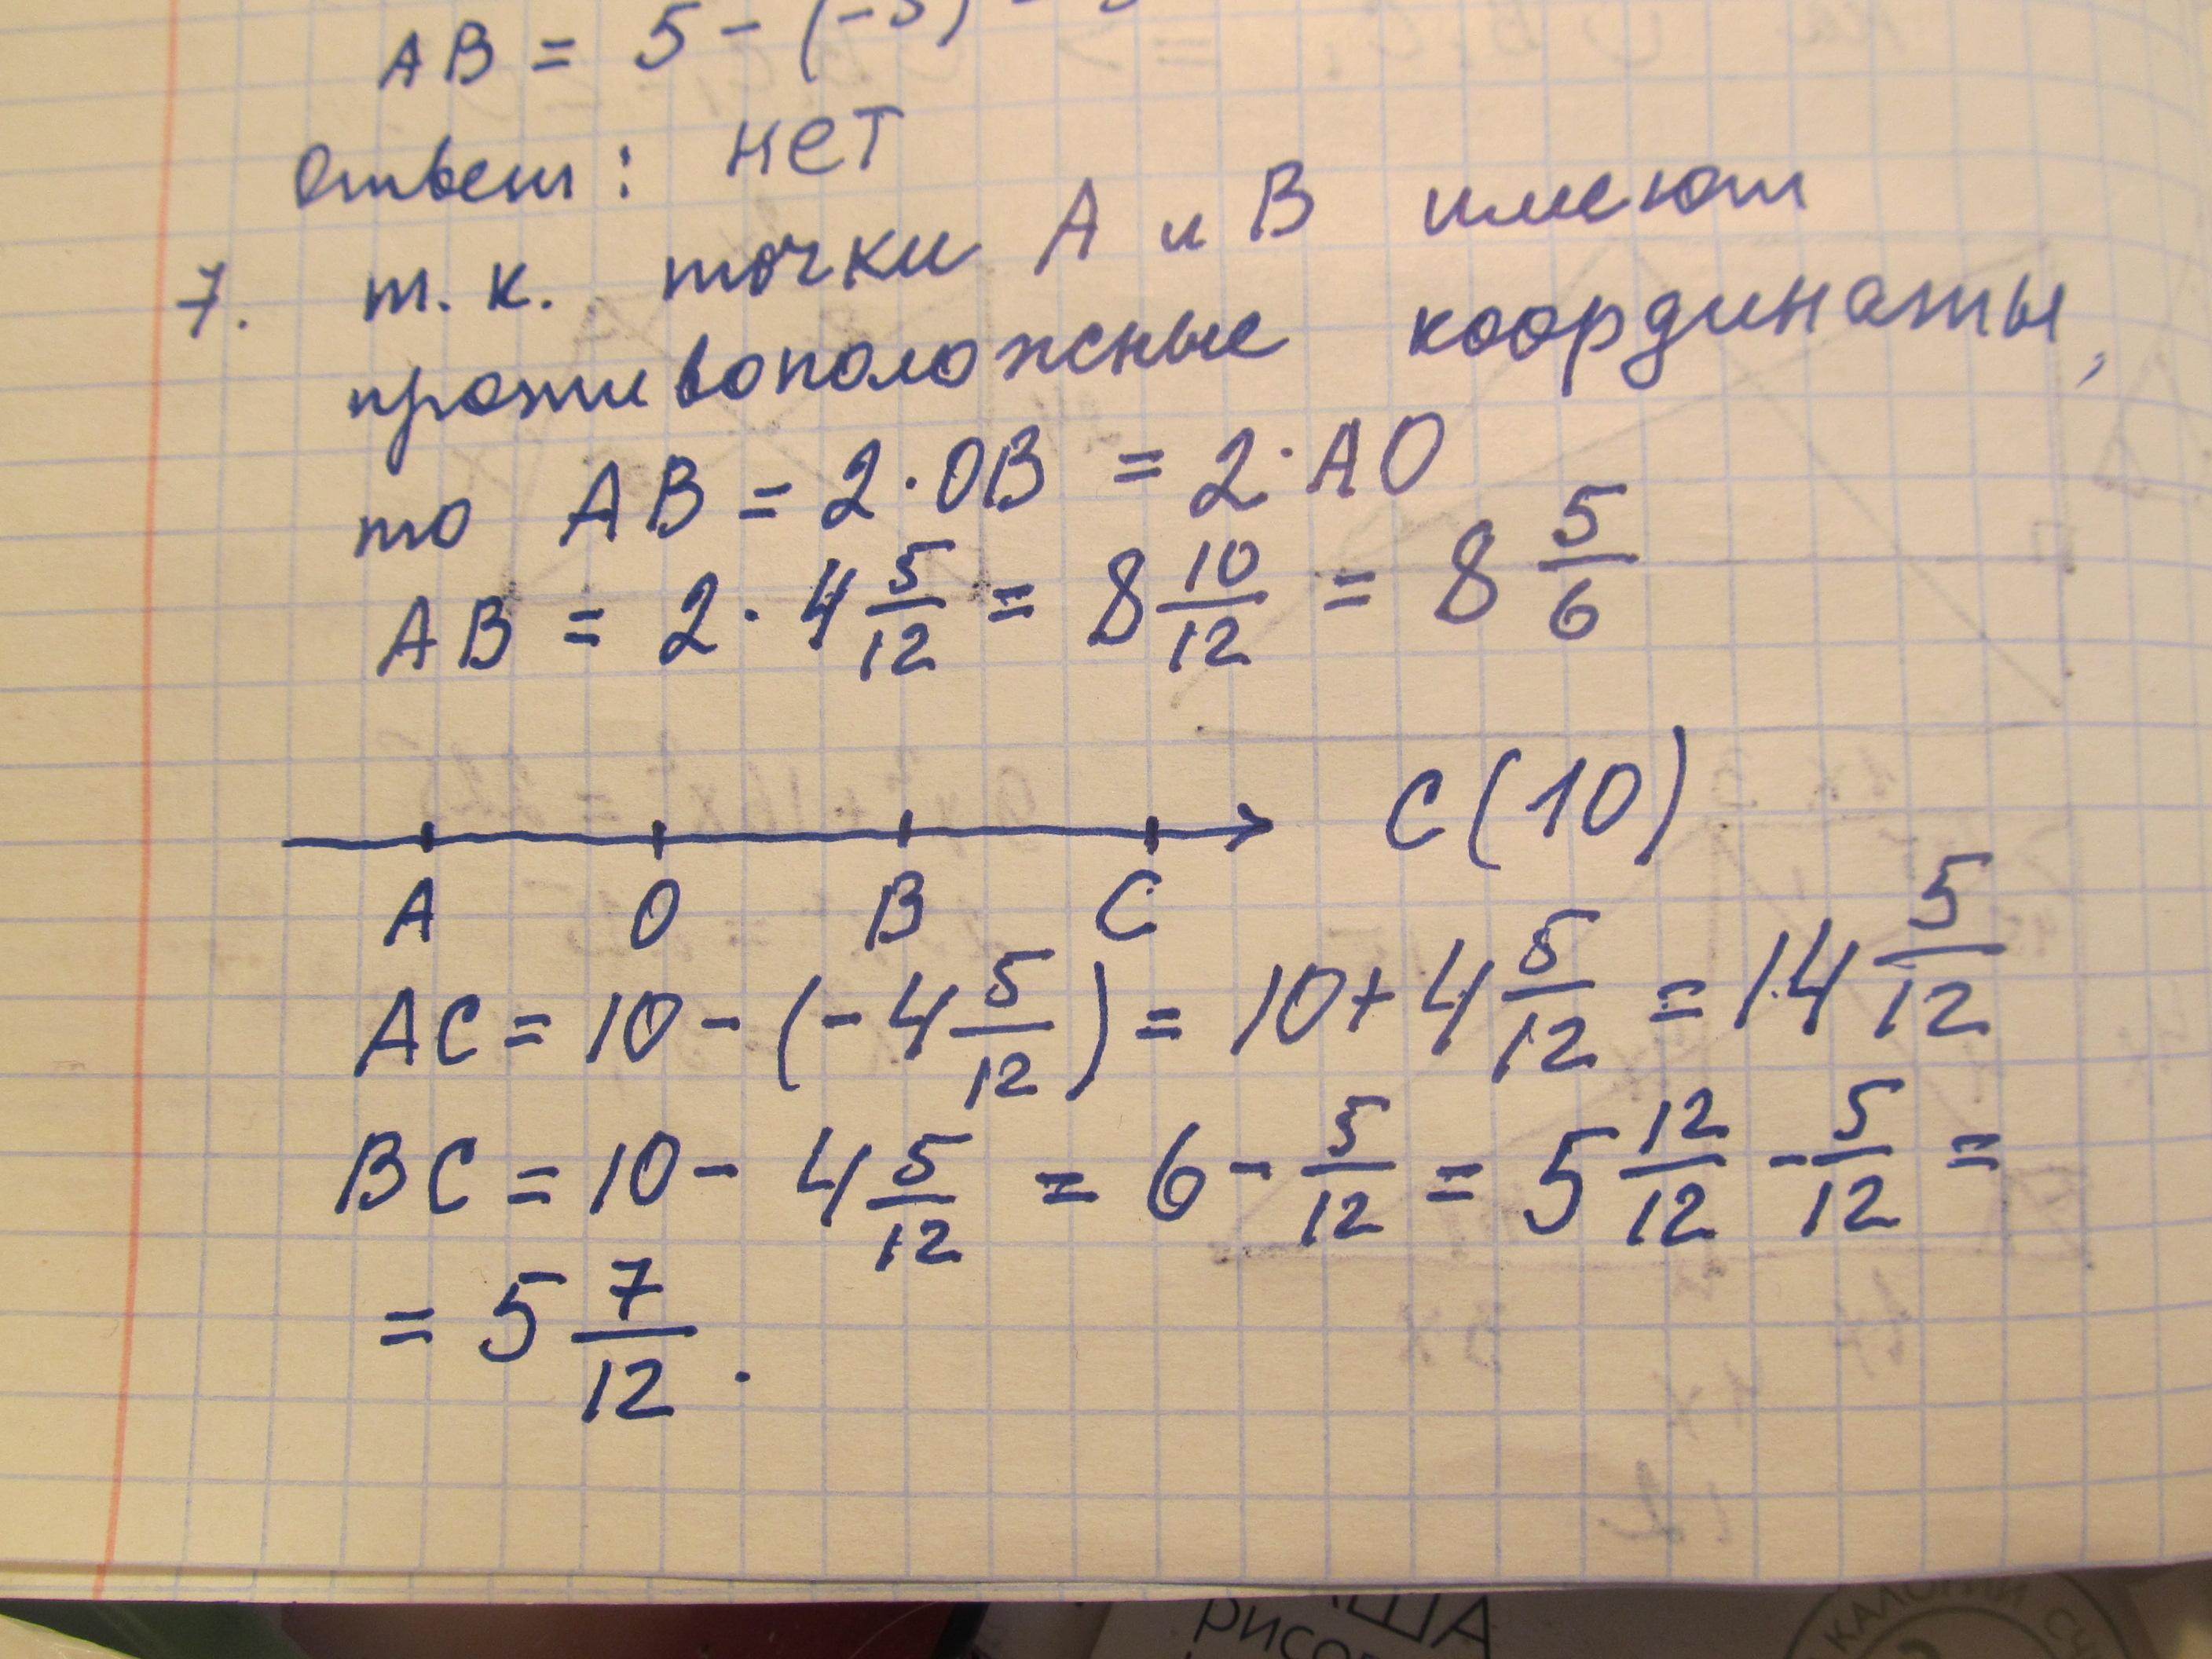 AB = 5 - (-5)
Ответ: нет
7. т.к. точки A и B имеют
противоположные координаты,
то AB = 2·OB = 2·AO
AB = 2·4 5/12 = 8 10/12 = 8 5/6
C(10)
A O B C
AC = 10 - (-4 5/12) = 10 + 4 5/12 = 14 5/12
BC = 10 - 4 5/12 = 6 - 5/12 = 5 12/12 - 5/12 =
= 5 7/12.
рисо